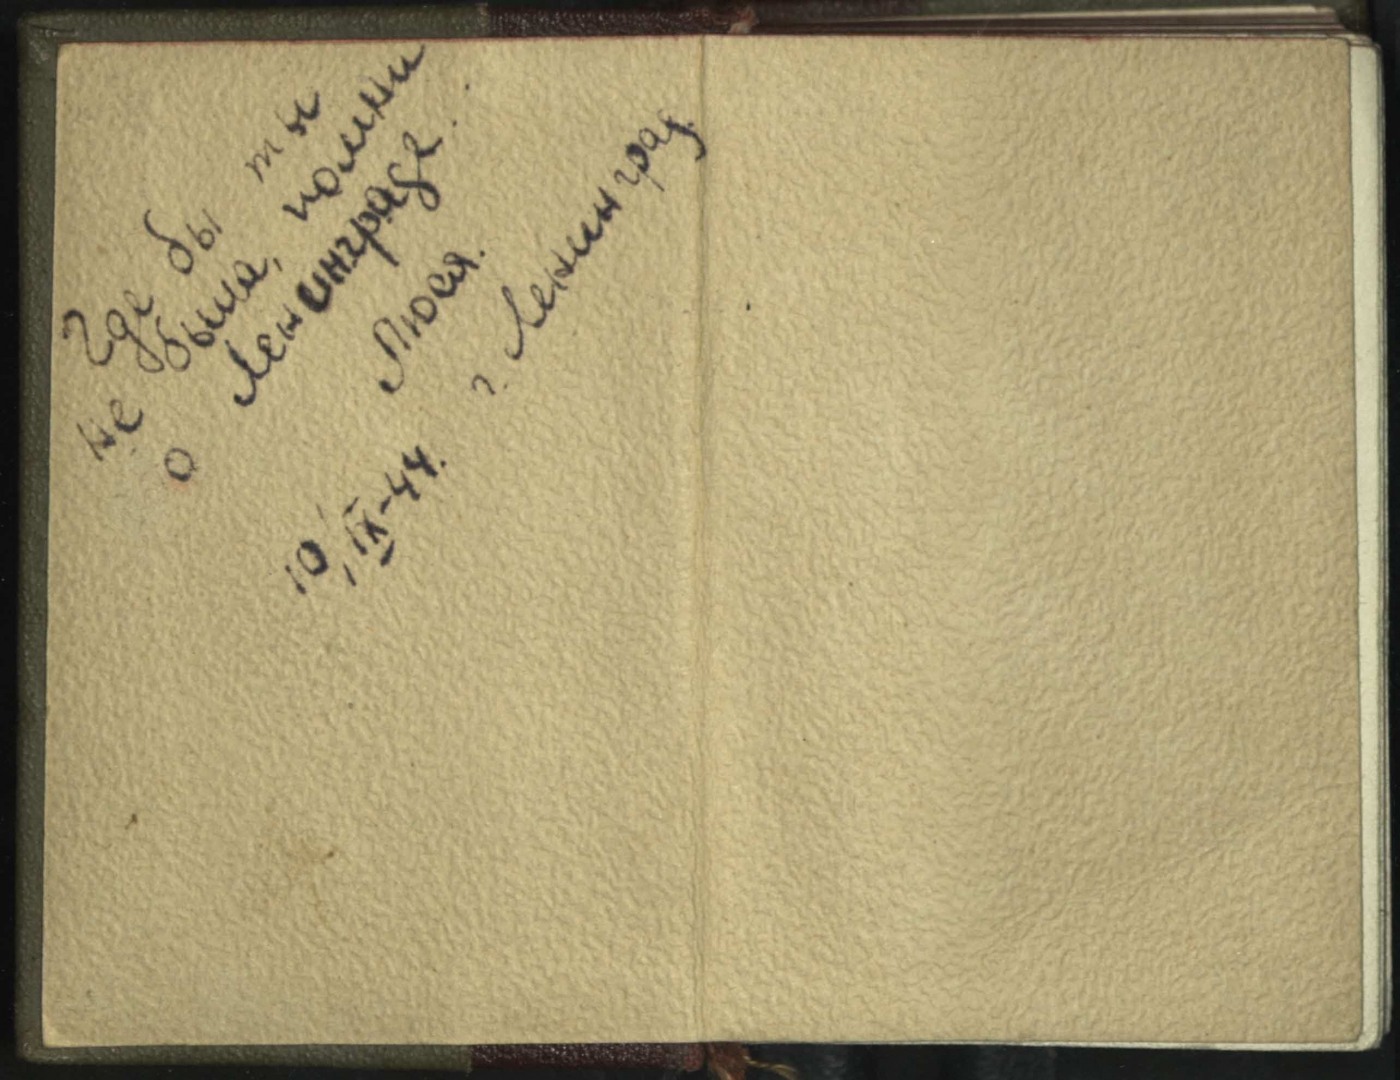 Где бы ты
не была, помни
о Ленинграде.
Люся.
г. Ленинград.
10, IX-44.